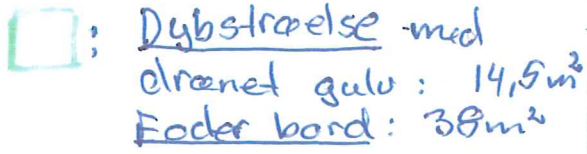 : Dybstrøelse med
drænet gulv : 14,5 m²
Foder bord : 38 m²